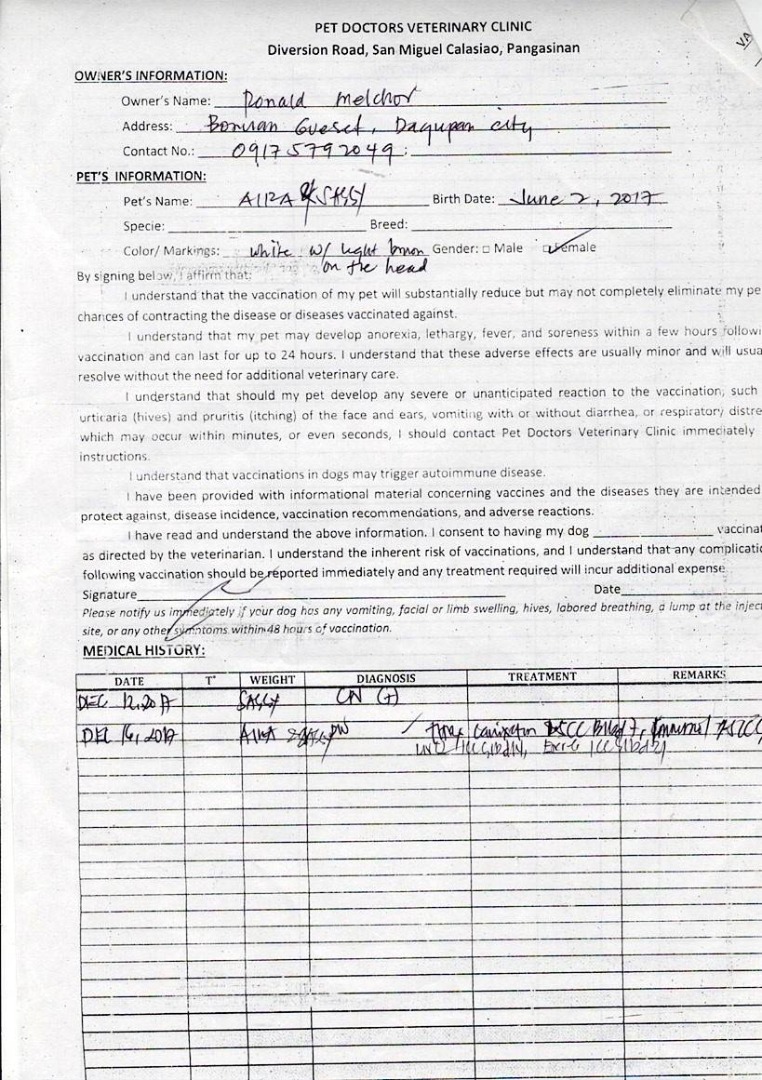 PET DOCTORS VETERINARY CLINIC
Diversion Road, San Miguel Calasiao, Pangasinan
VA
OWNER'S INFORMATION:
Owner's Name: Ronald Melchor
Address: Bonuan Gueset, Dagupan city
Contact No.: 09175792049
PET'S INFORMATION:
Pet's Name: AIRA & SASSY Birth Date: June 2, 2017
Specie: Breed:
Color/ Markings: white w/ light brown Gender: □ Male □ Female
on the head
By signing below, I affirm that:
I understand that the vaccination of my pet will substantially reduce but may not completely eliminate my pe
chances of contracting the disease or diseases vaccinated against.
I understand that my pet may develop anorexia, lethargy, fever, and soreness within a few hours followi
vaccination and can last for up to 24 hours. I understand that these adverse effects are usually minor and will usua
resolve without the need for additional veterinary care.
I understand that should my pet develop any severe or unanticipated reaction to the vaccination, such
urticaria (hives) and pruritis (itching) of the face and ears, vomiting with or without diarrhea, or respiratory distre
which may occur within minutes, or even seconds, I should contact Pet Doctors Veterinary Clinic immediately
instructions.
I understand that vaccinations in dogs may trigger autoimmune disease.
I have been provided with informational material concerning vaccines and the diseases they are intended
protect against, disease incidence, vaccination recommendations, and adverse reactions.
I have read and understand the above information. I consent to having my dog vaccinat
as directed by the veterinarian. I understand the inherent risk of vaccinations, and I understand that any complicatio
following vaccination should be reported immediately and any treatment required will incur additional expense
Signature Date
Please notify us immediately if your dog has any vomiting, facial or limb swelling, hives, labored breathing, a lump at the inject
site, or any other symptoms within 48 hours of vaccination.
MEDICAL HISTORY:
DATE T° WEIGHT DIAGNOSIS TREATMENT REMARKS
DEC 12, 2017 SASSY CN (+)
DEC 16, 2017 AIRA & SASSY DW